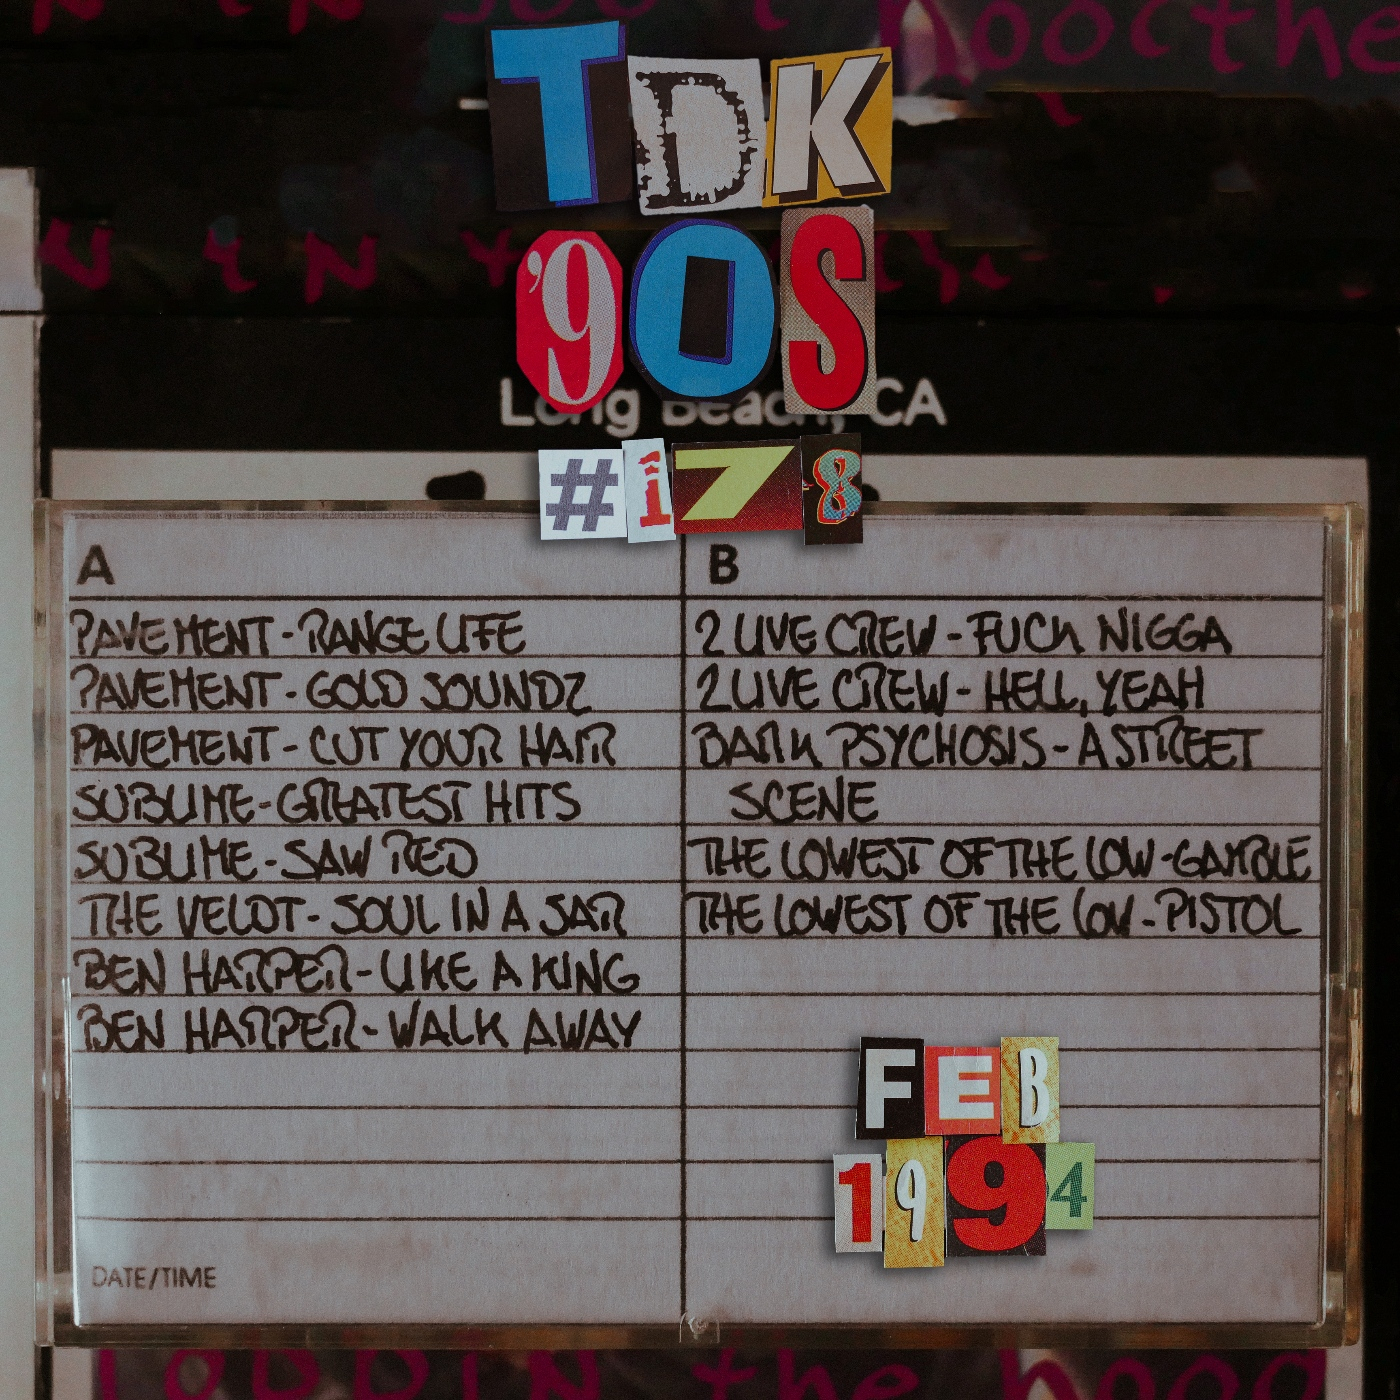 TDK
'90S
Long Beach, CA
#178
A
PAVEMENT - RANGE LIFE
PAVEMENT - GOLD SOUNDZ
PAVEMENT - CUT YOUR HAIR
SUBLIME - GREATEST HITS
SUBLIME - SAW RED
THE VELDT - SOUL IN A JAR
BEN HARPER - LIKE A KING
BEN HARPER - WALK AWAY
DATE/TIME
B
2 LIVE CREW - FUCK NIGGA
2 LIVE CREW - HELL, YEAH
BARK PSYCHOSIS - A STREET
SCENE
THE LOWEST OF THE LOW - GAMBLE
THE LOWEST OF THE LOW - PISTOL
FEB
1994
the hood